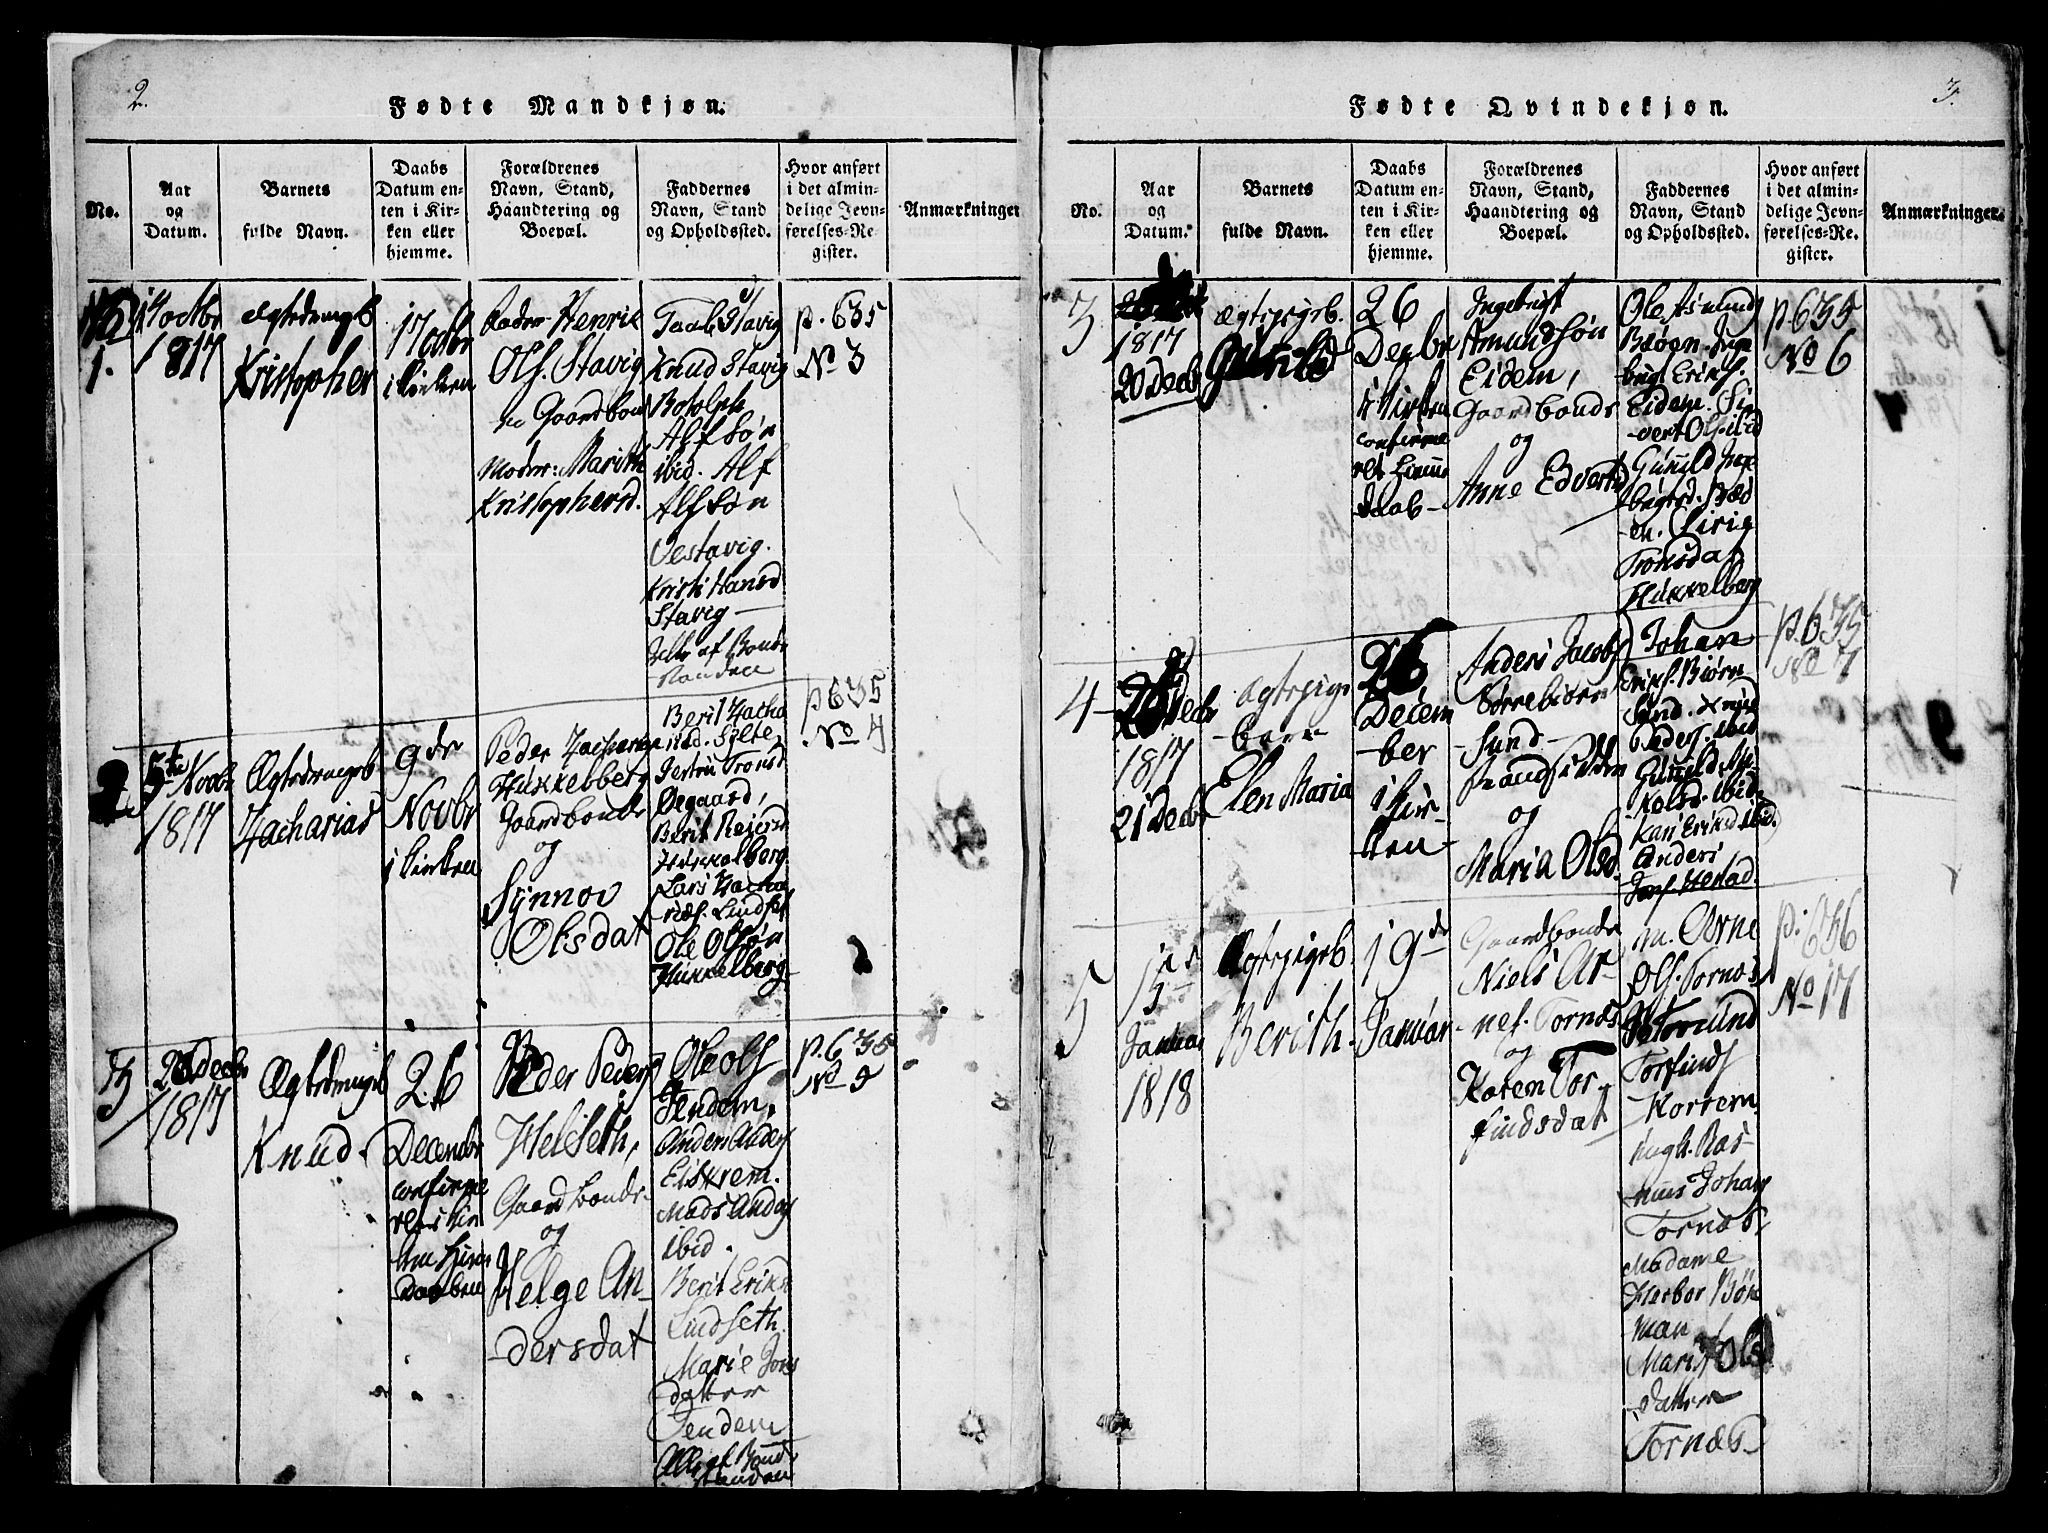 2.
Fødte Mandkjøn.
No.
Aar
og
Datum.
Barnets
fulde Navn.
Daabs
Datum en-
ten i Kir-
ken eller
hjemme.
Forældrenes
Navn, Stand,
Haandtering og
Boepæl.
Faddernes
Navn, Stand
og Opholdssted.
Hvor anført
i det almin-
delige Jevn-
førelses-Re-
gister.
Anmærkninger
1.
14 octbr
1817
Ægtedrengb
Kristopher
17 octbr
i Kirken
Fader Henrik
Ols. Stavig
Gaardbond
Moder: Marith
Kristophersd.
Stavig
Knud Stavig
Botolph
Alfsøn
ibid. Alf
Alfsøn
Vestavig.
Kristi Hansd
Stavig
Alle af Bonde
standen
p. 635
No 3
2
5te Novbr
1817
Ægtedrengeb
Zacharias
9de
Novbr
i Kirken
Peder Zacharias
Hukkelberg
Gaardbonde
og
Synnov
Olsdat
Berit Zacha
riad. Sylte,
Tronsd
Øegaard,
Berit Reiersd
Hukkelberg
Lars Zacha
riæs. Lindset
Ole Olsøn
Hukkelberg
p 635
No 4
3
26 Decbr
1817
Ægtedrengeb
Knud
26
Decembr
confirme
ret i Kir
ken Hiem
Daaben
Peder Peders
Helseth,
Gaardbonde
og
Helge An-
dersdat
Ole Ols
Tendem,
Anders Anders
Eiskrem.
Mads Anders
ibid.
Berit Eriksd
Lindseth
Marie Jons
datter
Tendem
Alle af Bonde
standen
p. 635
No 9
3.
Fødte Qvindekjøn.
No.
Aar
og
Datum.
Barnets
fulde Navn.
Daabs
Datum en-
ten i Kir-
ken eller
hjemme.
Forældrenes
Navn, Stand,
Haandtering og
Boepæl.
Faddernes
Navn, Stand
og Opholdssted.
Hvor anført
i det almin-
delige Jevn-
førelses-Re-
gister.
Anmærkninger.
3
1817
20 Decbr
Ægtepigeb.
Gunild
26
Decbr
i Kirken
confirme
ret Hiemme
daab
Ingebrigt
Amundsøn
Eidem,
Gaardbonde
og
Anne Edvertsd
Ole Asmund
Inge
brigt Eriks.
Eidem. Si-
vert Ols. ibid
Gunild Inge
brigtsd.
Siri
Tronsdat
Hukkelberg
p 635
No 6
4
1817
21 Decbr
Ægtepige
barn
Elen Maria
26
Decem
ber
i Kir-
ken
Anders Jacobs
Sørrebiørn
sund
Strandsidder
og
Maria Olsd.
Johan
Eriks. Biørn
sund. Knud
Peders. ibid
Gunild Mi-
kelsd. ibid
Kari Eriksd ibid.
Anders
Jons. Hestad.
p. 635
No 7
5
15
Januar
1818
Ægtepigeb.
Berith.
19de
Januar
Gaardbonde
Niels Ar-
nes. Tornæs
og
Karem Tor-
findsdat
m. Arne
Ols. Tornæs
Torfinds
Karrem
Ungk. Ras-
mus Johan
Tornæs
Madame
Herbor Bøk
man
Marit Ols
datter
Tornæs
p. 636
No 17